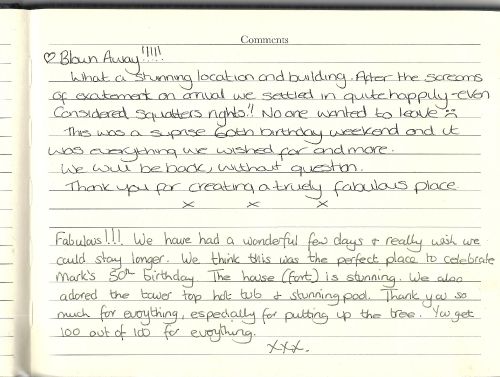 Comments
♡ Blown Away!!!!!
What a stunning location and building. After the screams
of excitement on arrival we settled in quite happily - even
considered squatters rights!! No one wanted to leave ☹
This was a suprise 60th birthday weekend and it
was everything we wished for and more.
We will be back, without question.
Thank you for creating a truely fabulous place.
x x x
Fabulous!!! We have had a wonderful few days & really wish we
could stay longer. We think this was the perfect place to celebrate
Mark's 50th birthday. The house (fort) is stunning. We also
adored the tower top hot tub & stunning pool. Thank you so
much for everything, especially for putting up the tree. You get
100 out of 100 for everything.
xxx.